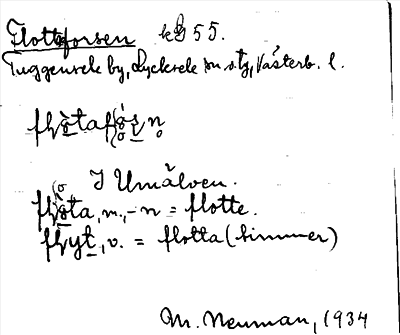 Flottoforsen kg 55.
Tuggensele by, Lycksele sn o. tg, Västerb. l.
I Umälven.
m., -n = flotte.
flyt, v. = flotta (timmer)
M. Neuman, 1934